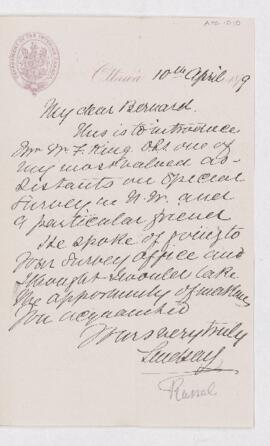 Ottawa 10th April 1879
My dear Bernard.
This is to introduce
Mr W. F. King one of
my most valued as-
sistants on Special
Survey in N.W. and
a particular friend
He spoke of going to
Your Survey Office and
I thought I would take
the opportunity of making
You acquainted
Yours very truly
Lindsay
Russell